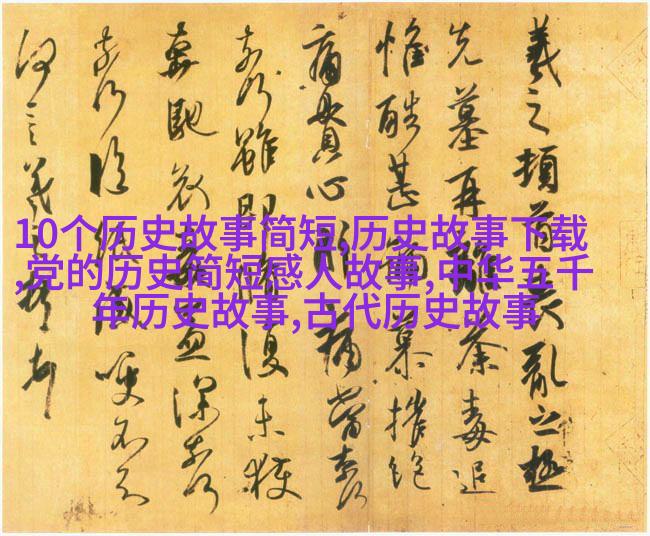 羲之頓首喪亂之極
先墓再離荼毒追
惟酷甚號慕摧絕
痛貫心肝痛當奈何
奈何雖即脩復未獲
奔馳哀毒益深奈何
奈何臨紙感哽不知
何言羲之頓首
10个历史故事简短,历史故事下载
,党的历史简短感人故事,中华五千
年历史故事,古代历史故事